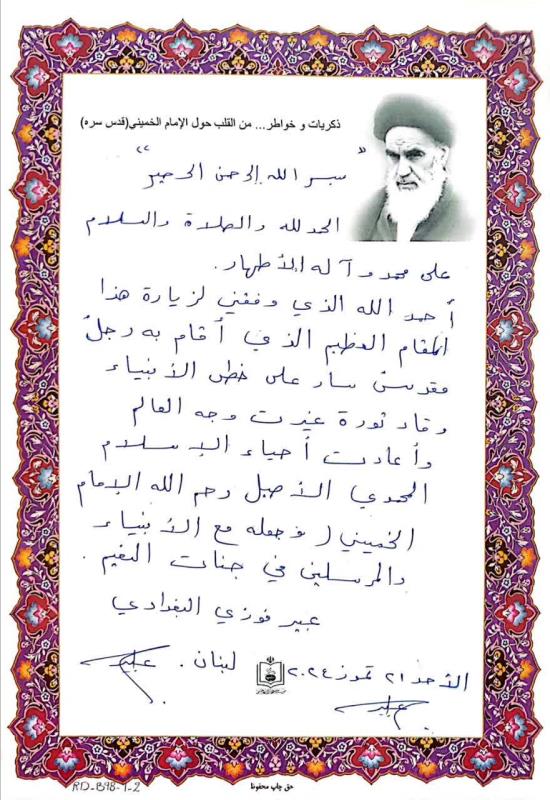 ذكريات و خواطر... من القلب حول الإمام الخميني(قدس سره)
"بسم الله الرحمن الرحيم"
الحمد لله والصلاة والسلام
على محمد وآله الأطهار.
أحمد الله الذي وفقني لزيارة هذا
المقام العظيم الذي أقام به رجلٌ
مقدسٌ سار على خطى الأنبياء
وقاد ثورة غيرت وجه العالم
وأعادت أحياء الإسلام
المحمدي الأصيل رحم الله الإمام
الخميني وجعله مع الأنبياء
والمرسلين في جنات النعيم.
عبير فوزي البغدادي
لبنان. عبير
الأحد ٢١ تموز ٢٠٢٤
عبير
حق چاپ محفوظ
RD-B98-1-2